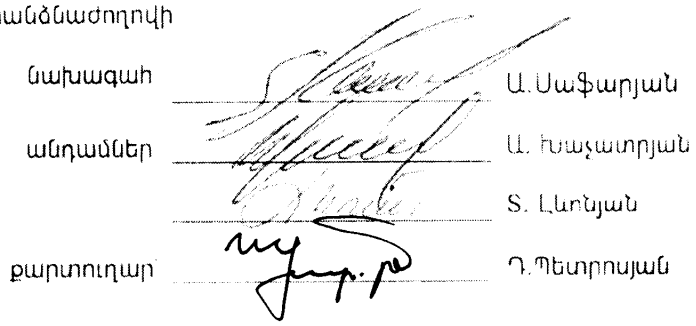 անձնաժողովի
նախագահ Ա.Սաֆարյան
անդամներ Ա. Խաչատրյան
Տ. Լևոնյան
քարտուղար Դ.Պետրոսյան